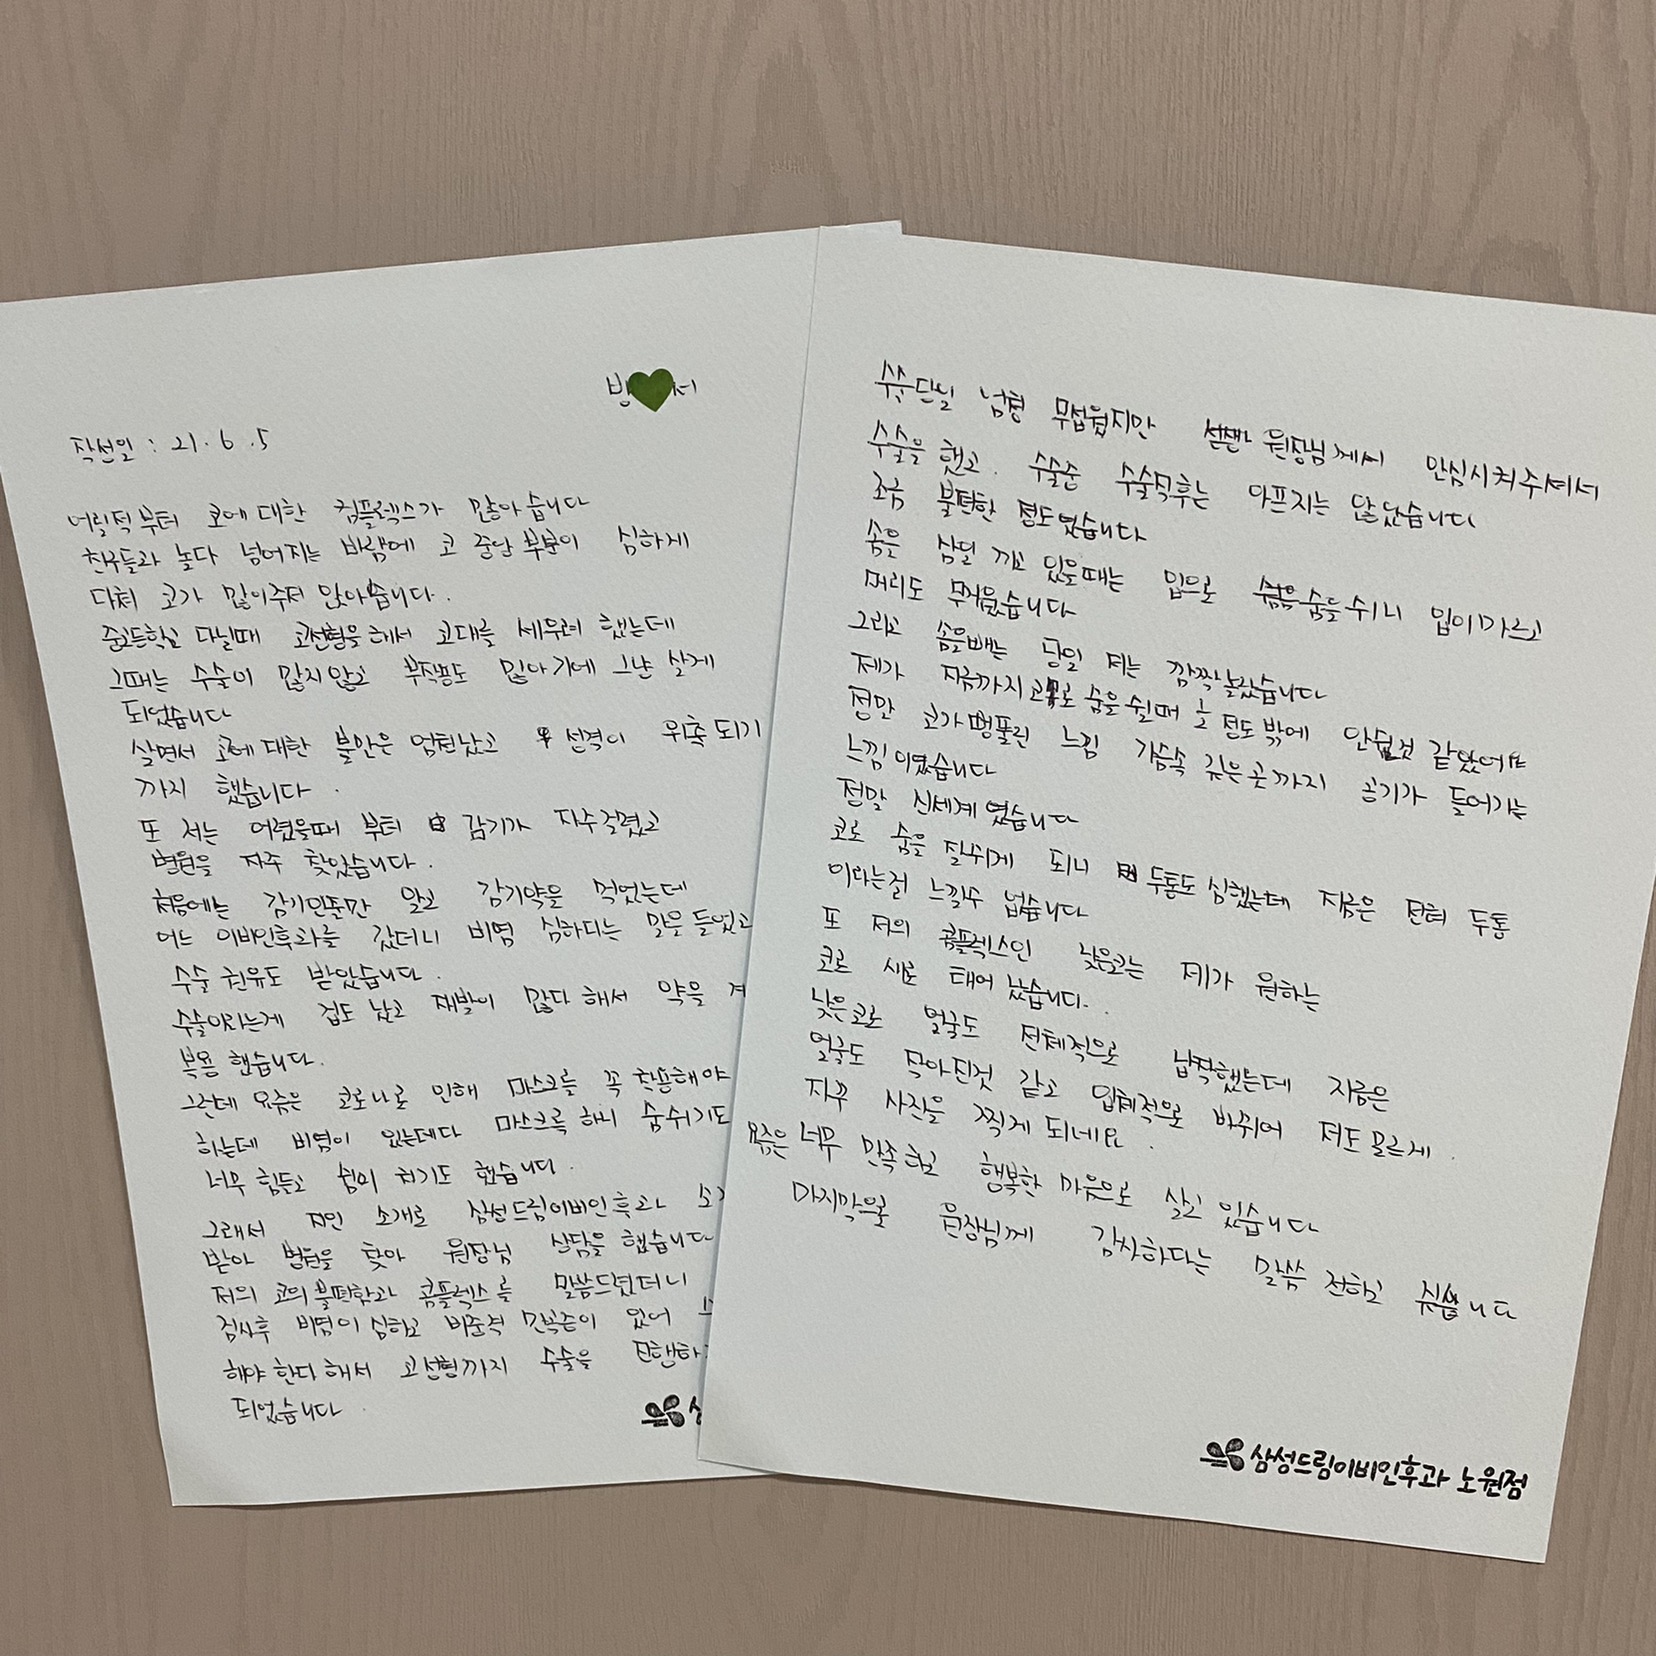 방 서
작성일 : 21.6.5
어릴적부터 코에대한 컴플렉스가 많아습니다
친구들과 놀다 넘어지는 바람에 코 중앙 부분이 심하게
다쳐 코가 많이주저 앉아습니다.
중고등학교 다닐때 코성형을해서 코대를 세우려 했는데
그때는 수술이 많지않고 부작용도 많아기에 그냥 살게
되었습니다
살면서 코에대한 불만은 엄청났고 성격이 위축되기
까지 했습니다.
또 저는 어렸을때 부터 감기가 자주걸렸고
병원을 자주 찾았습니다.
처음에는 감기인줄만 알고 감기약을 먹었는데
어느 이비인후과를 갔더니 비염 심하다는 말을들었고
수술권유도 받았습니다.
수술이라는게 겁도났고 재발이 많다해서 약을
복용했습니다.
그런데 요즘은 코로나로 인해 마스크를 꼭착용해야
하는데 비염이 있는데다 마스크를 하니 숨쉬기도
너무힘들고 숨이 차기도 했습니다.
그래서 지인 소개로 삼성드림이비인후과
받아 병원을 찾아 원장님 상담을했습니다
저의 코의불편함과 콤플렉스를 말씀드렸더니
검사후 비염이심하고 비중격 만곡증이 있어
해야한다해서 코성형까지 수술을
되었습니다.
수술당일 넘 무섭웠지만 원장님께서 안심시켜주셔서
수술을했고. 수술중 수술직후는 아프지는 않았습니다
조금 불편한 정도였습니다
솜을 삼일 끼고있을때는 입으로 숨을쉬니 입이마르고
머리도 무거웠습니다
그리고 솜을빼는 당일 저는 깜짝놀랐습니다
제가 지금까지코로숨을쉴때 ½ 정도밖에 안쉰것 같았어요
정말 코가뻥뚫린 느낌 가슴속 깊은곳까지 공기가 들어가는
느낌이였습니다
정말 신세계였습니다
코로 숨을 잘쉬게 되니 두통도심했는데 지금은 전혀 두통
이라는걸 느낄수 없습니다
또 저의 콤플렉스인 낮은코는 제가 원하는
코로 새로 태어났습니다.
낮은코로 얼굴도 전체적으로 납작했는데 지금은
얼굴도 작아진것 같고 입체적으로 바뀌어 저도모르게.
자꾸 사진을 찍게되네요.
요즘은너무 만족하고 행복한 마음으로 살고있습니다
마지막으로 원장님께 감사하다는 말씀 전하고 싶습니다
삼성드림이비인후과 노원점